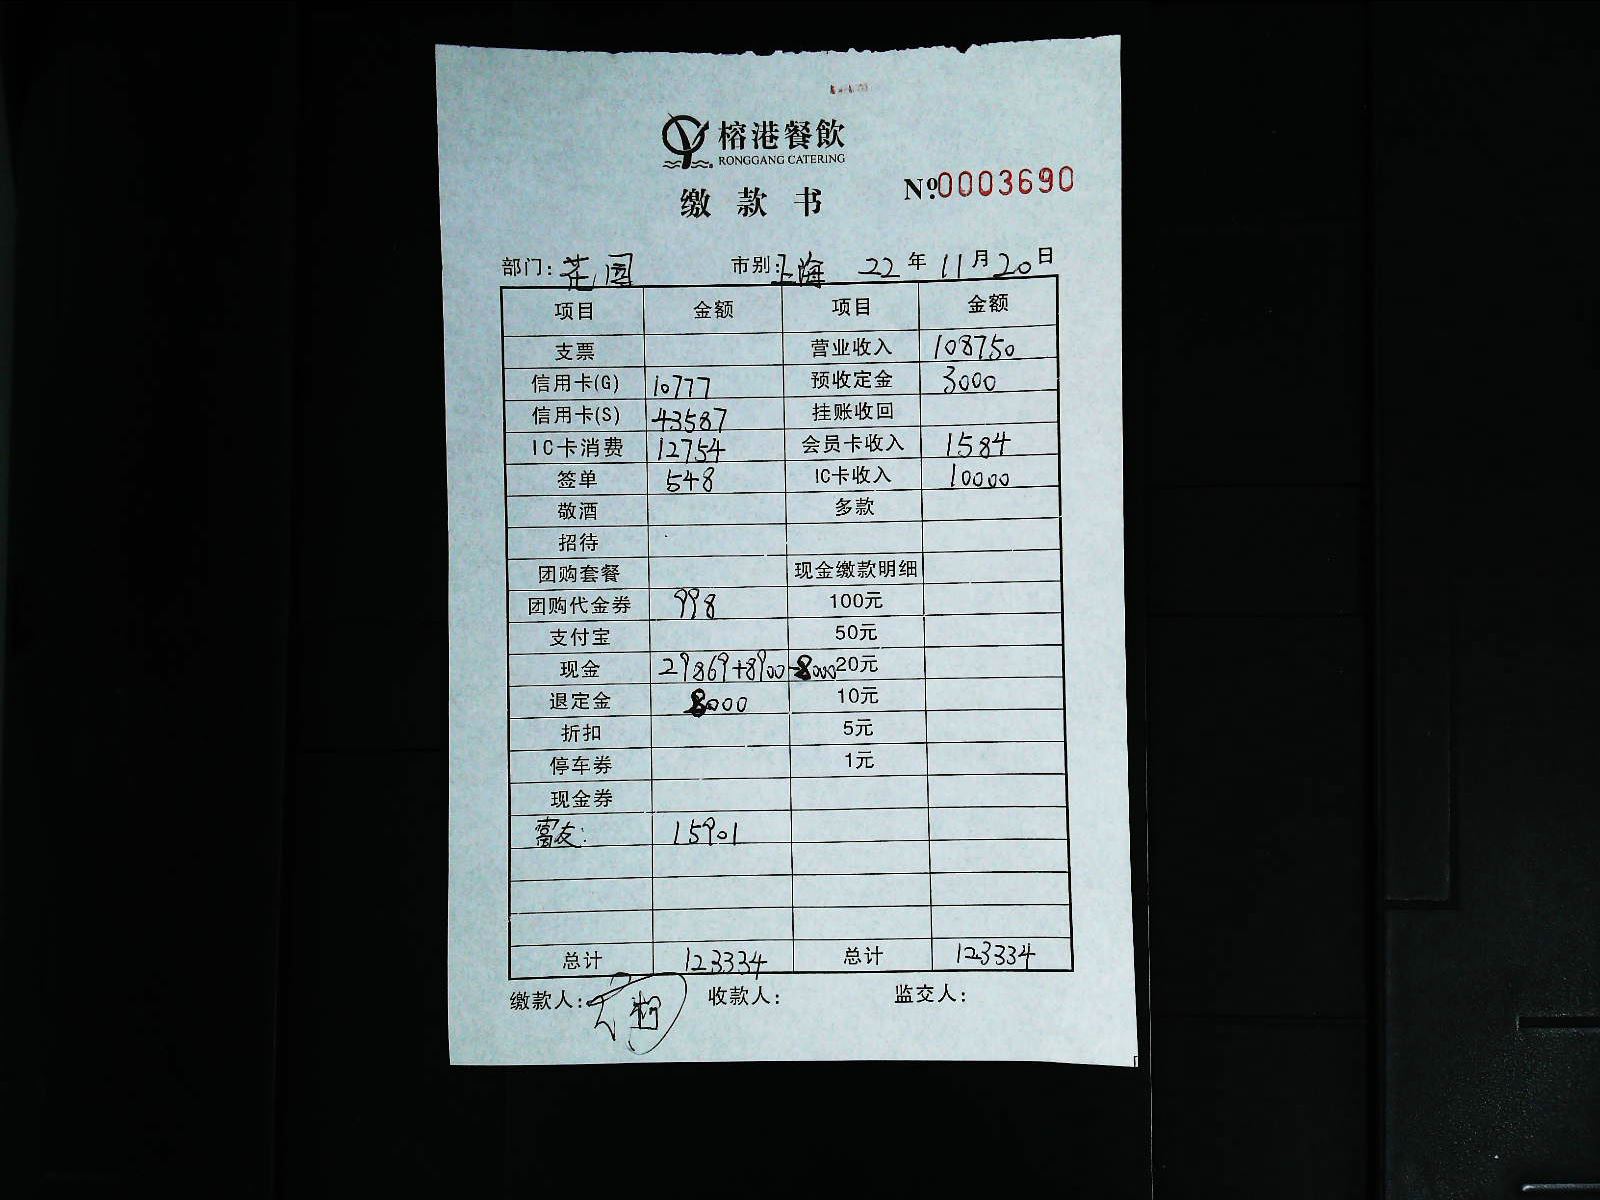 榕港餐飲
RONGGANG CATERING
缴款书
№.0003690
部门：花园 市别：上海 22年11月20日
项目 金额 项目 金额
支票 营业收入 108750
信用卡(G) 10777 预收定金 3000
信用卡(S) 43587 挂账收回
IC卡消费 12754 会员卡收入 1584
签单 548 IC卡收入 10000
敬酒 多款
招待
团购套餐 现金缴款明细
团购代金券 998 100元
支付宝 50元
现金 29869+8900-8000 20元
退定金 8000 10元
折扣 5元
停车券 1元
现金券
富友： 15901
总计 123334 总计 123334
缴款人： 收款人： 监交人：